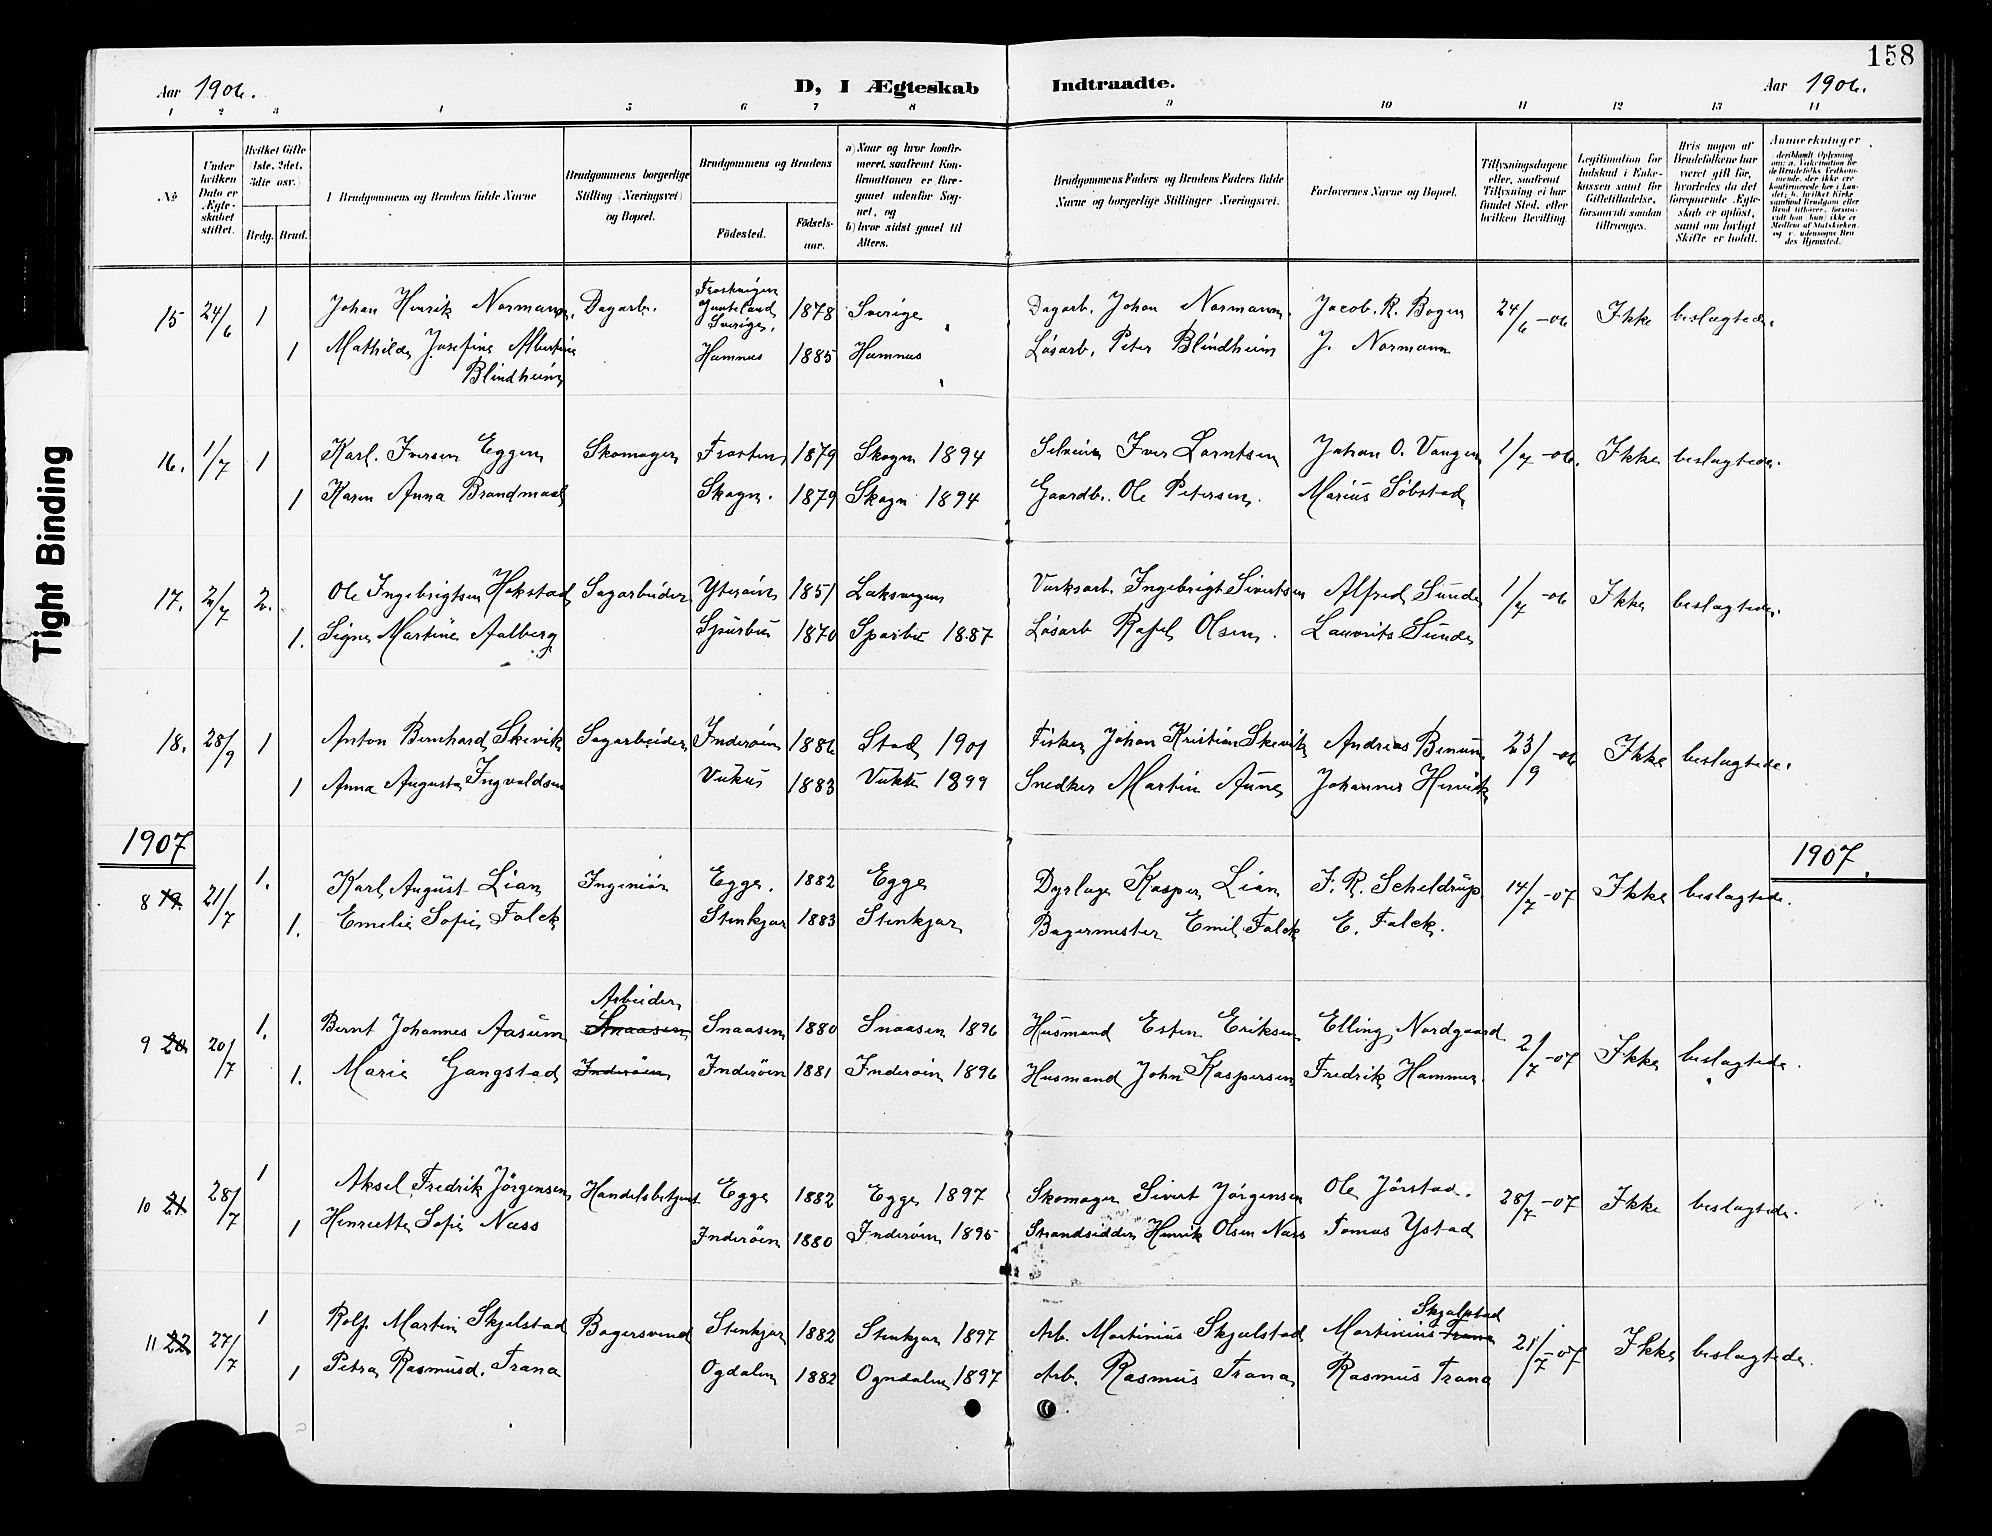 158
Aar 1906.
D, I Ægteskab Indtraadte.
Aar 1906.
1 2 3 4 5 6 7 8 9 10 11 12 13 14
No
Under hvilken Dato er Ægteskabet stiftet.
Hvilket Gifte (1ste, 2det, 3die osv.)
Brdg. Brud.
Brudgommens og Brudens fulde Navne
Brudgommens borgerlige Stilling (Næringsvei) og Bopæl.
Brudgommens og Brudens
Födested.
Födselsaar.
a) Naar og hvor konfirmeret, saafremt Konfirmationen er foregaaet udenfor Sognet, og
b) hvor sidst gaaet til Alters.
Brudgommens Faders og Brudens Faders fulde Navne og borgerlige Stillinger (Næringsvei.
Forlovernes Navne og Bopæl.
Tillysningsdagene eller, saafremt Tillysning ei har fundet Sted, efter hvilken Bevilling
Legitimation for Indskud i Enkekassen samt for Giftetilladelse, forsaavidt saadan tiltrænges.
Hvis nogen af Brudefolkene har været gift før, hvorledes da det foregaaende Ægteskab er opløst, samt om lovligt Skifte er holdt.
Anmerkninger
15 24/6 1 Johan Henrik Normann. Dagarb. Jamteland Sverige. 1878 Sverige Dagarb. Johan Normann. Jacob. R. Bogen 24/6-06 Ikke beslagtede.
1 Mathilde Josefine Albertine Blindheim Hamnes 1885 Hamnes Løsarb. Peter Blindheim J. Normann
16. 1/7 1 Karl. Iversen Eggen Skomager Frosten 1879 Skogn 1894 Iver Lorntsen Johan O. Vangen 1/7-06. Ikke beslagtede.
1 Karen Anna Brandmael Skogn. 1879 Skogn 1894 Gaardb. Ole Petersen. Marius Söbstad
17. 2/7 2. Ole Ingebrigtsen Hokstad Sagarbeider Yterøen 1851 Laksvigen Verksarb. Ingebrigt Sivertsen Alfred Sunde 1/7-06 Ikke beslagtede.
1. Signe Martine Aalberg Sparbu 1870 Sparbu 1887 Løsarb Rafel Olsen. Lauvrits Sunde
18. 28/9 1 Anton Bernhard Skevik Sagarbeider Inderøen 1886 Stod 1901 Fisker Johan Kristian Skevik Andreas Benum 23/9-06 Ikke beslagtede.
1 Anna Augusta Ingvaldsen Vukus 1883 Vukku 1899 Snedker Martin Aune Johannes Henrik
1907
1907.
8 19 21/7 1. Karl August Lian Ingeniør Egge. 1882 Egge Dyrlæge Kasper Lian F. R. Scheldrup 14/7-07 Ikke beslagtede.
1. Emelie Sofie Falck Stenkjær 1883 Stenkjær Bagermester Emil Falck E. Falck.
9 20 20/7 1. Bernt Johannes Aasum Arbeider Snaasen Snaasen 1880 Snaasen 1896 Husmand Esten Eriksen Elling Nordgaard 2/7-07 Ikke beslagtede.
1. Marie Gangstad Inderøen Inderøen 1881 Inderøen 1896 Husmand John Kaspersen Fredrik Hammer.
10 21 28/7 1 Aksel Fredrik Jörgensen Handelsbetjent Egge 1882 Egge 1897 Skomager Sivert Jörgensen Ole Jörstad. 28/7-07 Ikke beslagtede.
1 Henriette Sofie Næss Inderøen 1880 Inderøen 1895 Strandsidder Henrik Olsen Næss Tomas Ystad
11 22 27/7 1 Rolf Martin Skjelstad Bagersvend Stenkjær 1882 Stenkjær 1897 Arb. Martinius Skjelstad Martinius Trana Skjelstad 21/7-07 Ikke beslagtede.
1 Petra Rasmusd. Trana Ogdalen 1882 Ogndalen 1897 Arb. Rasmus Trana Rasmus Trana
Tight Binding